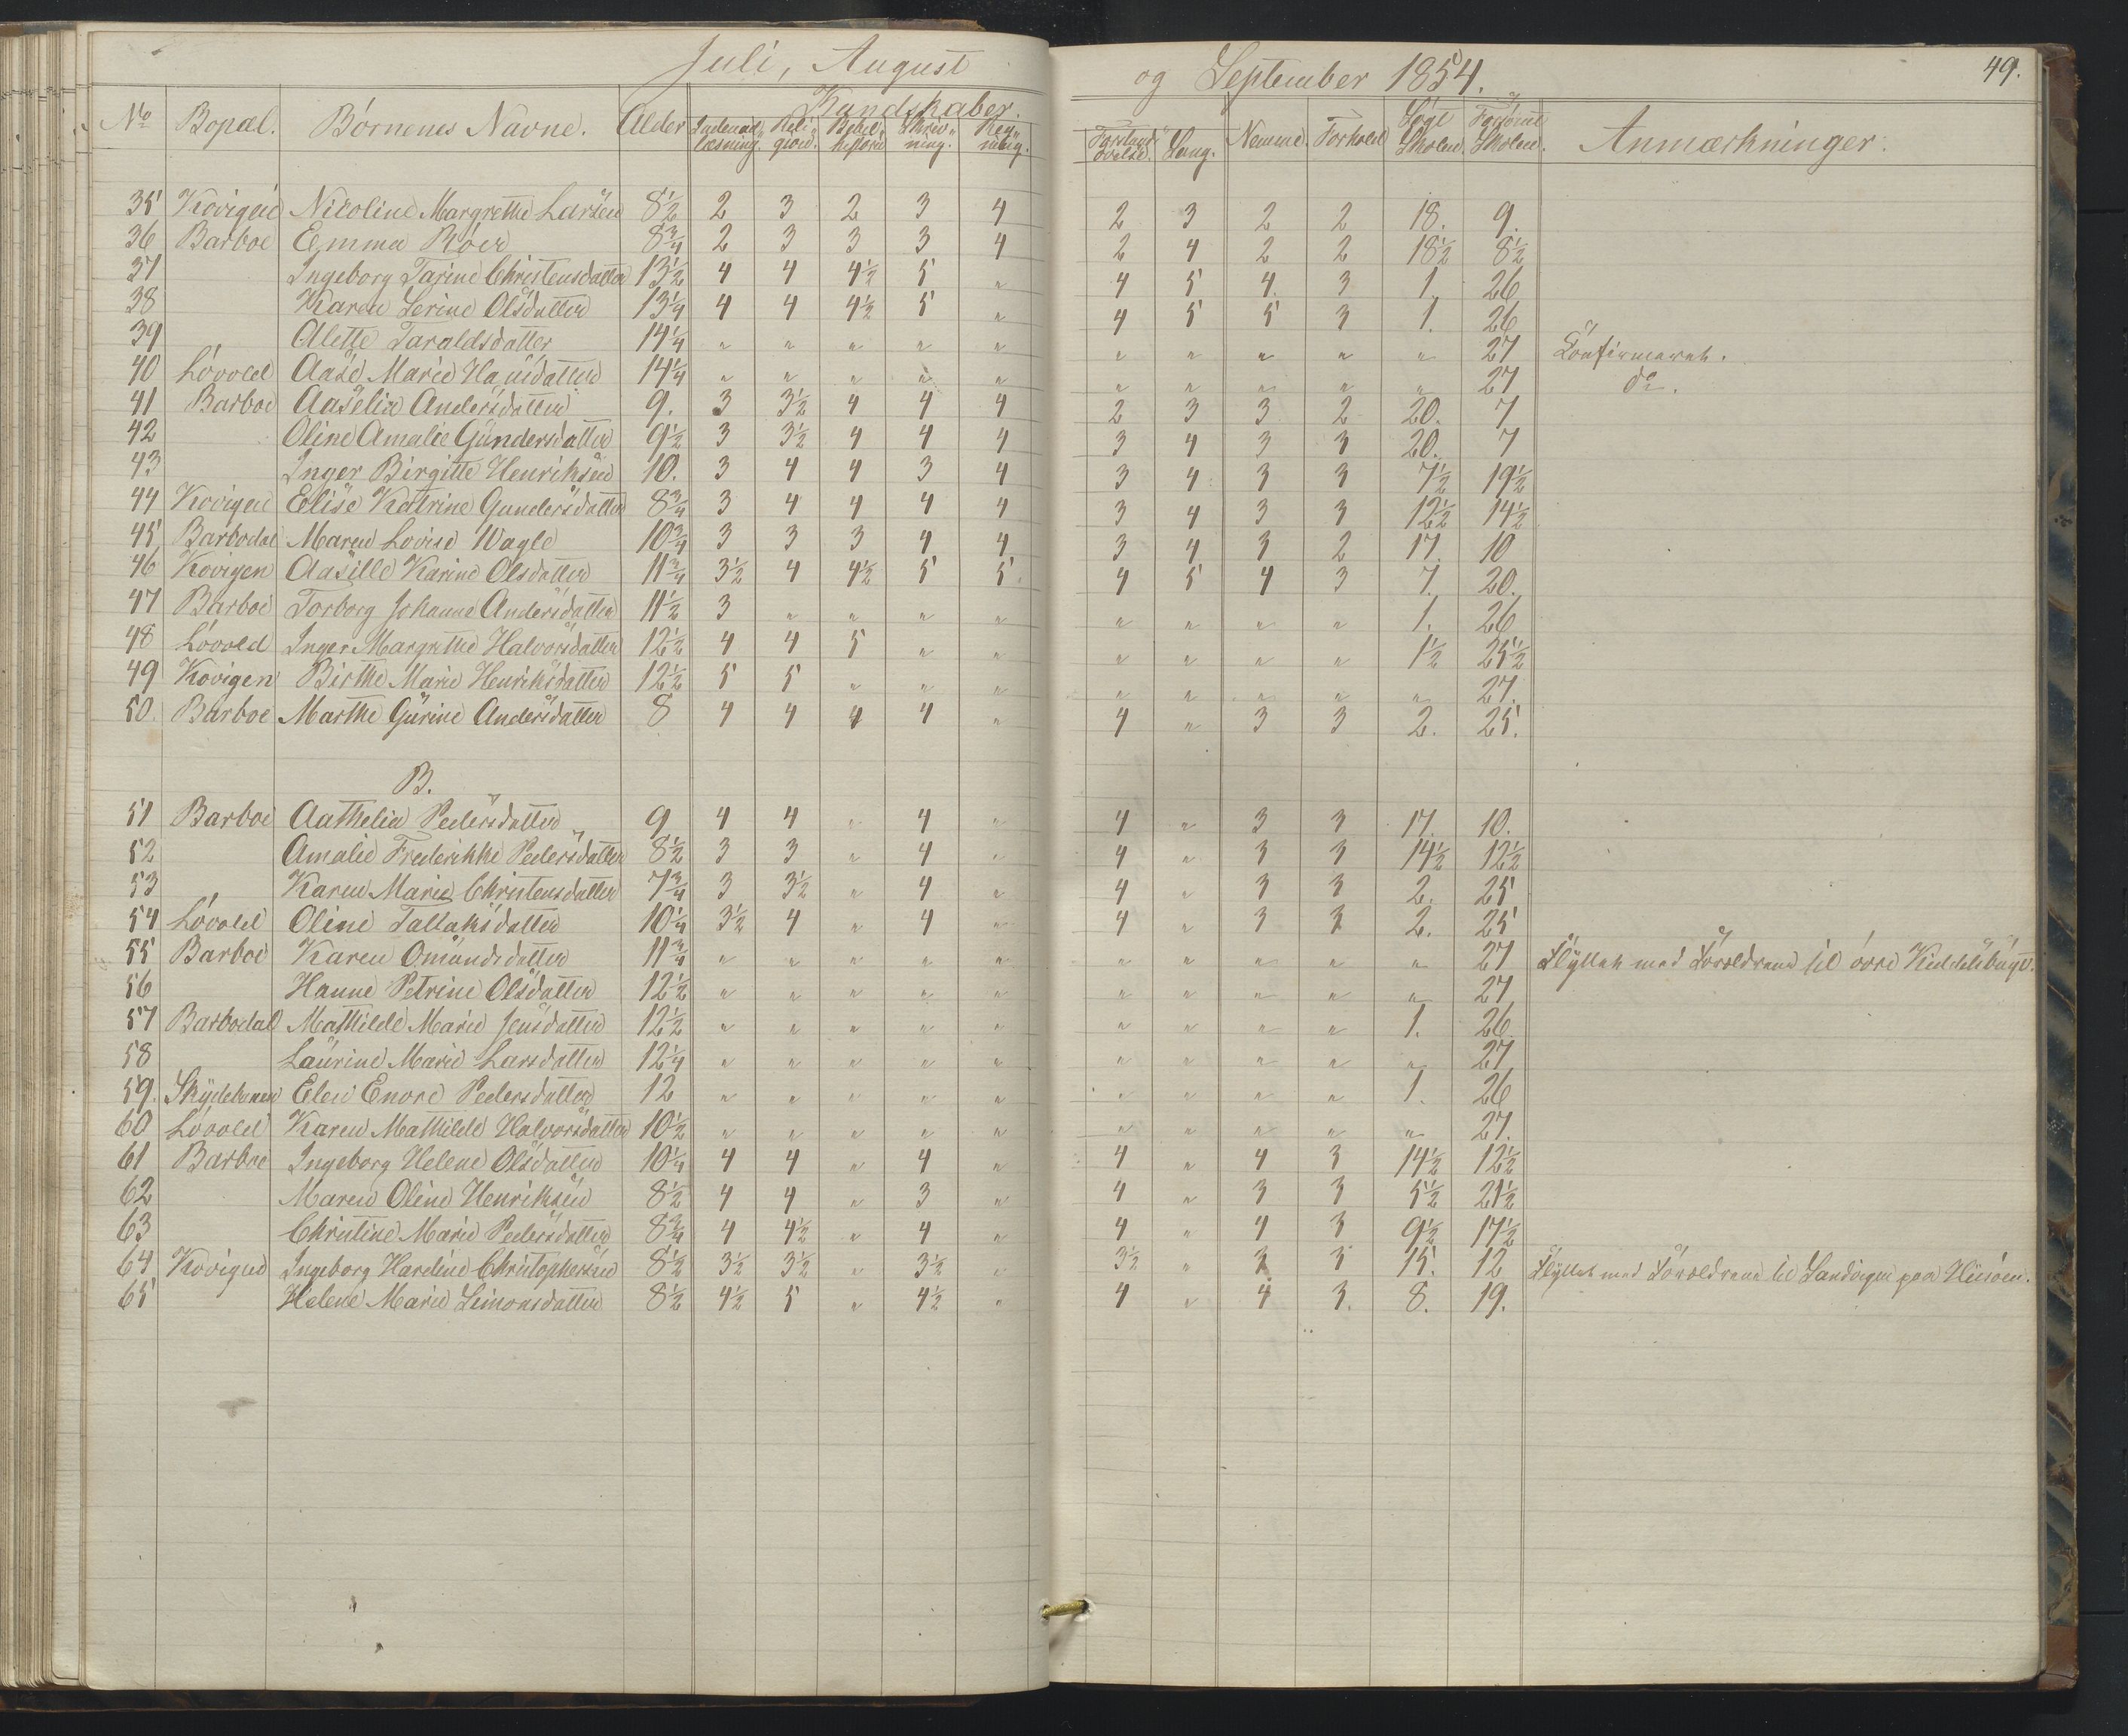 Juli, August og September 1854. 49.
No Bopæl. Børnenes Navne. Alder Kundskaber. Indenad-læsning. Reli-gion. Bibel-historie Skriv-ning. Reg-ning. Forstands-øvelse. Sang. Nemme. Forhold Søgt Skolen. Forsømt Skolen. Anmærkninger.
35 Kovigen Nicoline Margrethe Larsen 8½ 2 3 2 3 4 2 3 2 2 18. 9.
36 Barboe Emma Röer 8¾ 2 3 3 3 4 2 4 2 2 18½ 8½
37 Ingeborg Tarine Christensdatter 13½ 4 4 4½ 5 " 4 5 4. 3 1. 26
38 Karen Serine Olsdatter 13¼ 4 4 4½ 5 " 4 5 5 3 1. 26
39 Alette Taraldsdatter 14¼ " " " " " " " " " " 27 Confirmeret.
40 Lövold Aase Marie Hansdatter 14¼ " " " " " " " " " " 27 do.
41 Barboe Aaselia Andersdatter 9. 3 3½ 4 4 4 2 3 3 2 20. 7
42 Oline Amalie Gundersdatter 9½ 3 3½ 4 4 4 3 4 3 3 20. 7
43 Inger Birgitte Henriksen 10. 3 4 4 3 4 3 4 3 3 7½ 19½
44 Kovigen Elise Katrine Gundersdatter 8¾ 3 4 4 4 4 3 4 3 3 12½ 14½
45 Barbodal Maren Lovise Wagle 10¾ 3 3 3 4 4. 3 4 3 2 17. 10
46 Kovigen Aasille Karine Olsdatter 11¾ 3½ 4 4½ 5 5. 4 5 4 3 7. 20.
47 Barboe Torborg Johanne Andersdatter 11½ 3 " " " " " " " " 1. 26
48 Lövold Inger Margrethe Halvorsdatter 12½ 4 4 5 " " " " " " 1½ 25½
49 Kovigen Birthe Marie Henriksdatter 12½ 5 5 " " " " " " " " 27.
50. Barboe Marthe Gurine Andersdatter 8 4 4 4 4 " 4 " 3 3 2. 25.
B.
51 Barboe Aathelia Pedersdatter 9 4 4 " 4 " 4 " 3 3 17. 10.
52 Amalie Frederikke Pedersdatter 8½ 3 3 " 4 " 4 " 3 3 14½ 12½
53 Karen Marie Christensdatter 7¾ 3 3½ " 4 " 4 " 3 3 2. 25
54 Lövold Oline Tallaksdatter 10¼ 3½ 4 " 4 " 4 " 3 3 2. 25
55 Barboe Karen Omundsdatter 11¾ " " " " " " " " " " 27 Flyttet med Forældrene til övre
56 Hanne Petrine Olsdatter 12½ " " " " " " " " " " 27
57 Barbodal Mathilde Marie Jensdatter 12½ " " " " " " " " " 1. 26.
58 Laurine Marie Larsdatter 12¼ " " " " " " " " " " 27
59. Skydebanen Elen Enore Pedersdatter 12 " " " " " " " " " 1. 26
60 Lövold Karen Mathilde Halvorsdatter 10½ " " " " " " " " " " 27.
61 Barboe Ingeborg Helene Olsdatter 10¼ 4 4 " 4 " 4 " 4 3 14½ 12½
62 Maren Oline Henriksen 8½ 4 4 " 3 " 4 " 3 3 5½ 21½
63 Christine Marie Pedersdatter 8¾ 4 4½ " 4 " 4 " 4 3 9½ 17½
64 Kovigen Ingeborg Hardine Christophersen 8½ 3½ 3½ " 3½ " 3½ " 3 3 15. 12 Flyttet med Forældrene til Sandvigen paa Hisöen.
65 Helene Marie Simonsdatter 8½ 4½ 5 " 4½ " 4 " 4 3. 8. 19.